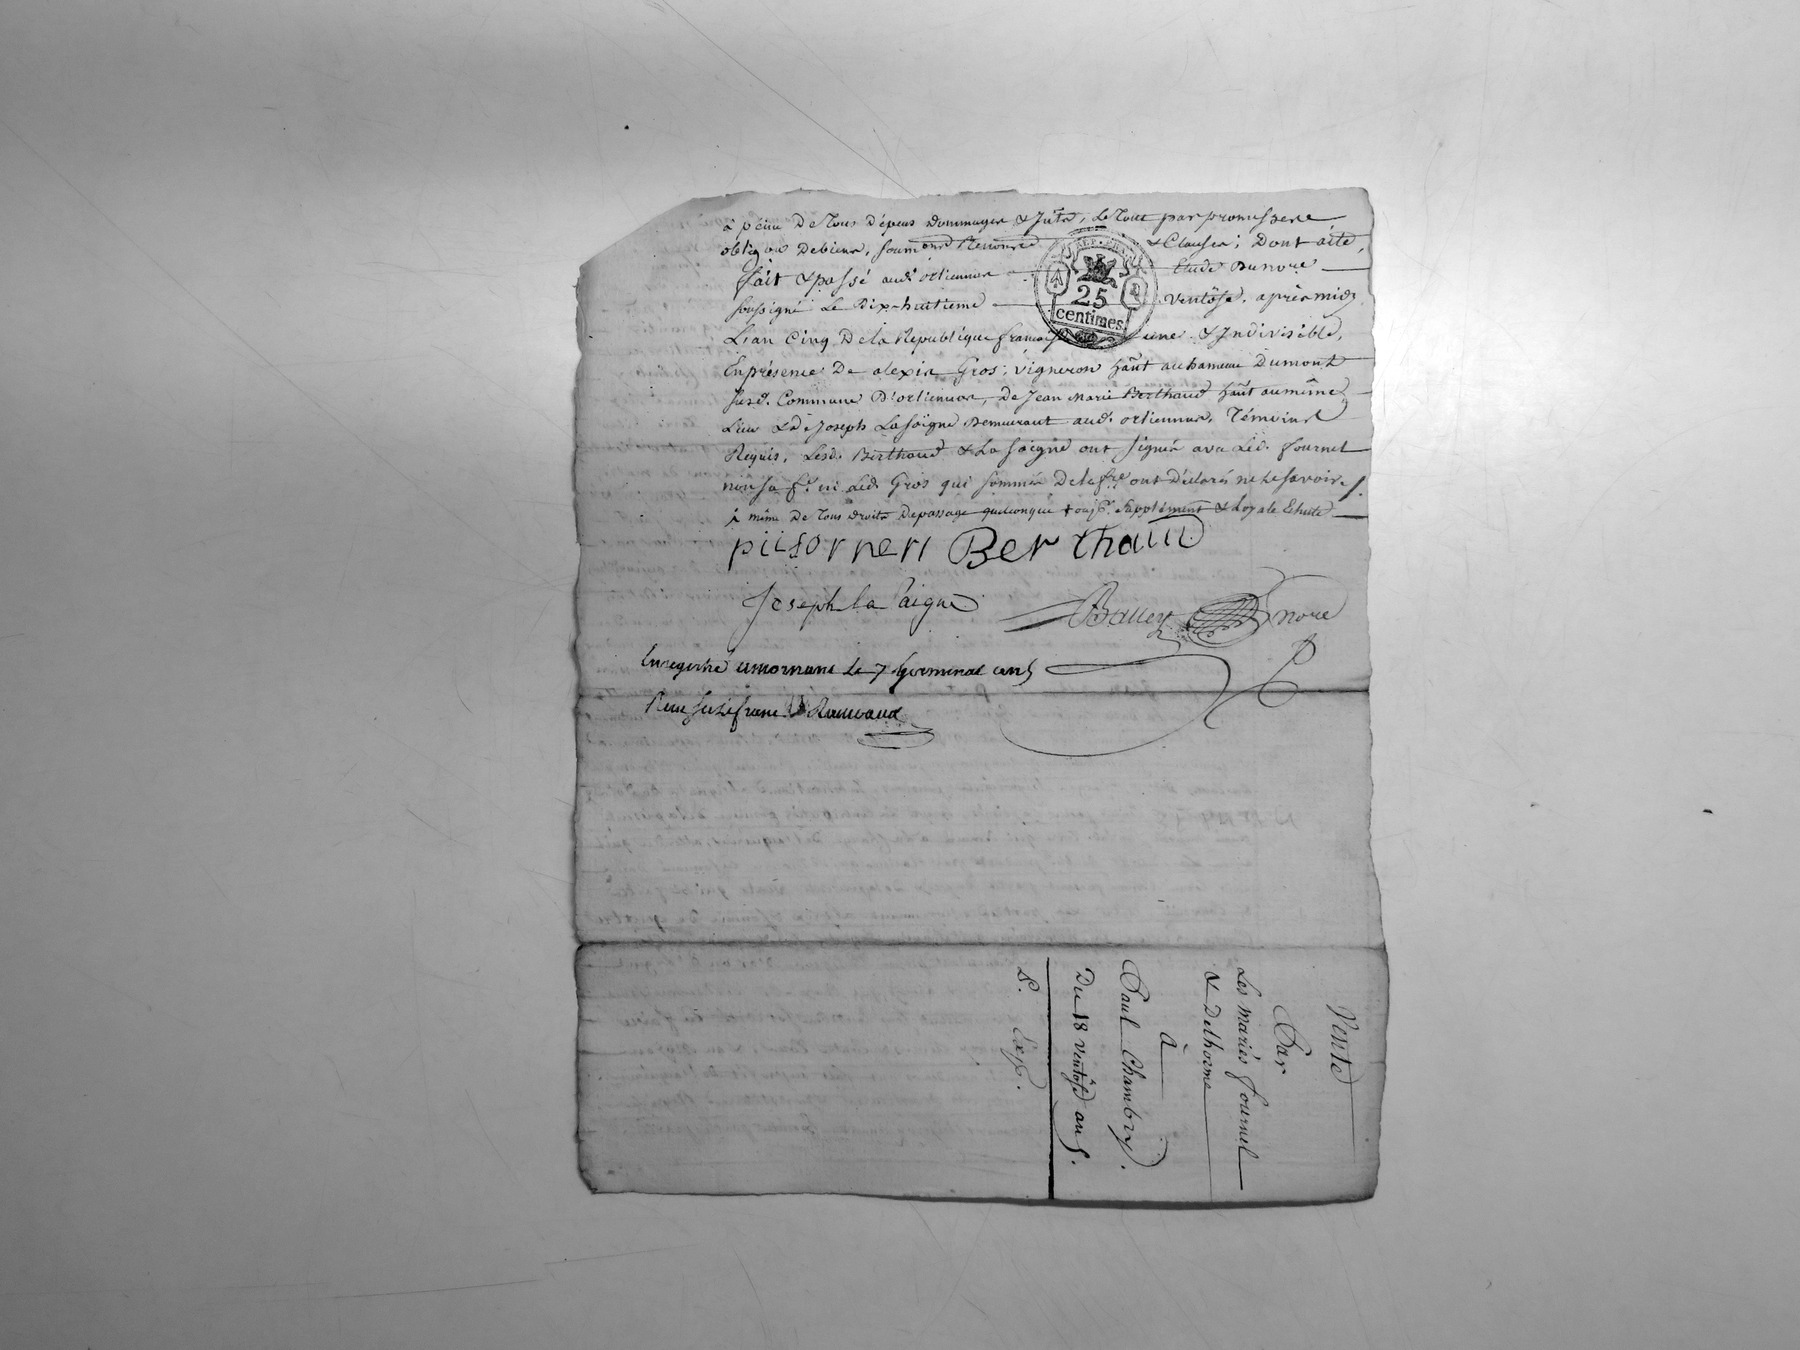 à peine De Tous Dépens Dommages & Intts, Le Tout par promesse
obligon De biens, soumons Renonce & Clauses; Dont acte,
fait & passé audt orliennas Etude Du nore
soussigné Le Dix-huitieme Ventôse, après midy
L'an Cinq De la Republique francaise une & Indivisible,
En présence De alexis Gros, vigneron hant au hameau Dumont
susd. Commune D'orlienas, De Jean Marie Berthaud hant au même
Lieu & De Joseph La saigne Demeurant aud. orliennas, Témoins
Requis, Lesd. Berthaud & La saigne ont signés avec Led. fournel
non sa fe ni Led. Gros qui sommés De le fre ont Déclarés ne Le savoir
à même De Tous Droits De passage quelconque supplément & Loyale
Berthaud
Joseph la saigne
nore
Enregistré a mornant Le 7 Germinal an 5
Reçu
25
centimes
Vente
Par
Les mariés fournel
& Delhorme
à
Paul Chambry.
Du 18 Ventôse an 5.